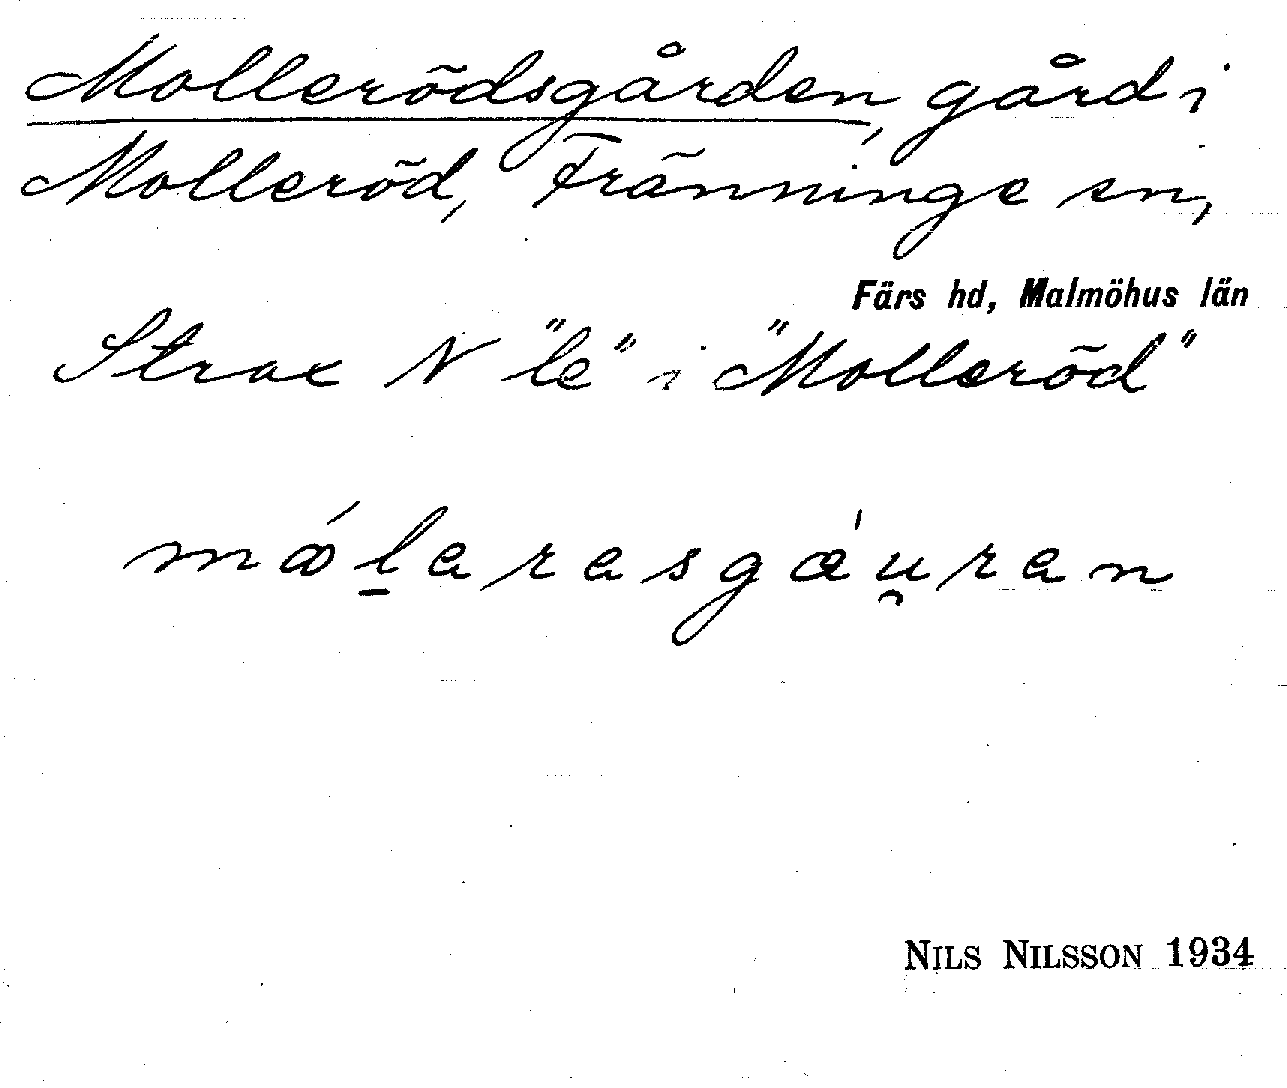 Mollerödsgården, gård i
Molleröd, Fränninge sn,
Färs hd, Malmöhus län
Strax N "le" i "Molleröd"
NILS NILSSON 1934